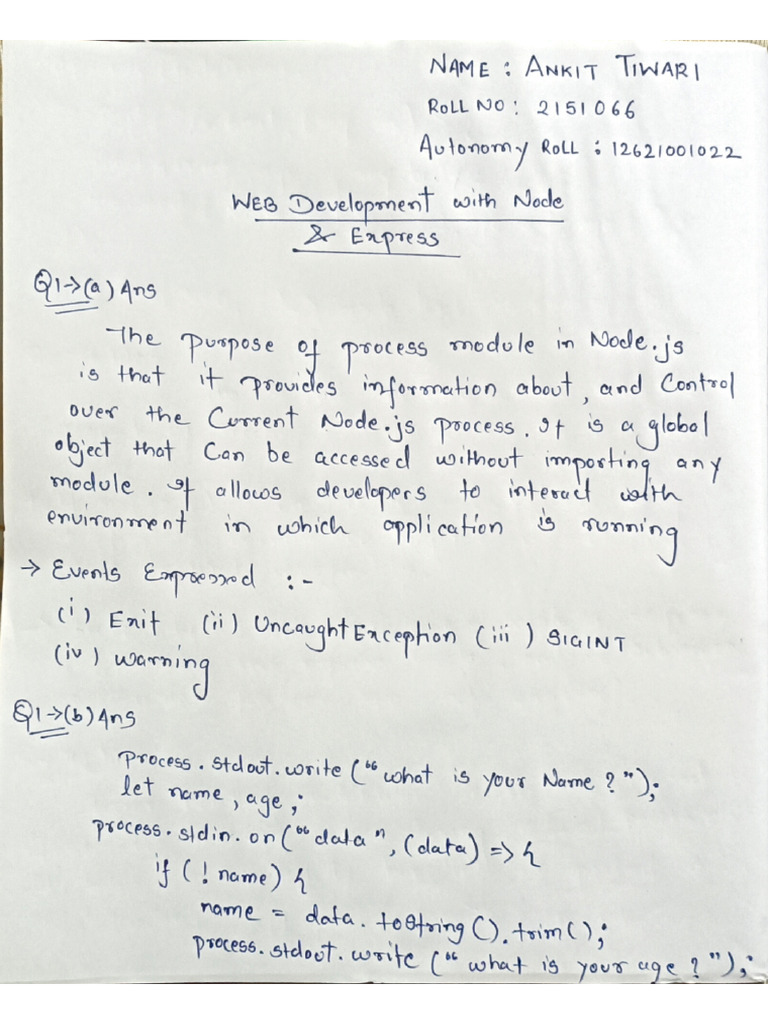 NAME : ANKIT TIWARI
ROLL NO : 2151066
Autonomy ROLL : 12621001022
WEB Development with Node
& Express
Q1→(a) Ans
The purpose of process module in Node.js
is that it provides information about, and Control
over the Current Node.js process. It is a global
object that Can be accessed without importing any
module. It allows developers to interact with
environment in which application is running
→ Events Expressed :-
(i) Exit (ii) UncaughtException (iii) SIGINT
(iv) Warning
Q1→(b) Ans
process.stdout.write (“what is your Name ?”);
let name, age;
process.stdin.on (“data”, (data) => {
if (! name) {
name = data.toString().trim();
process.stdout.write (“what is your age ?”);